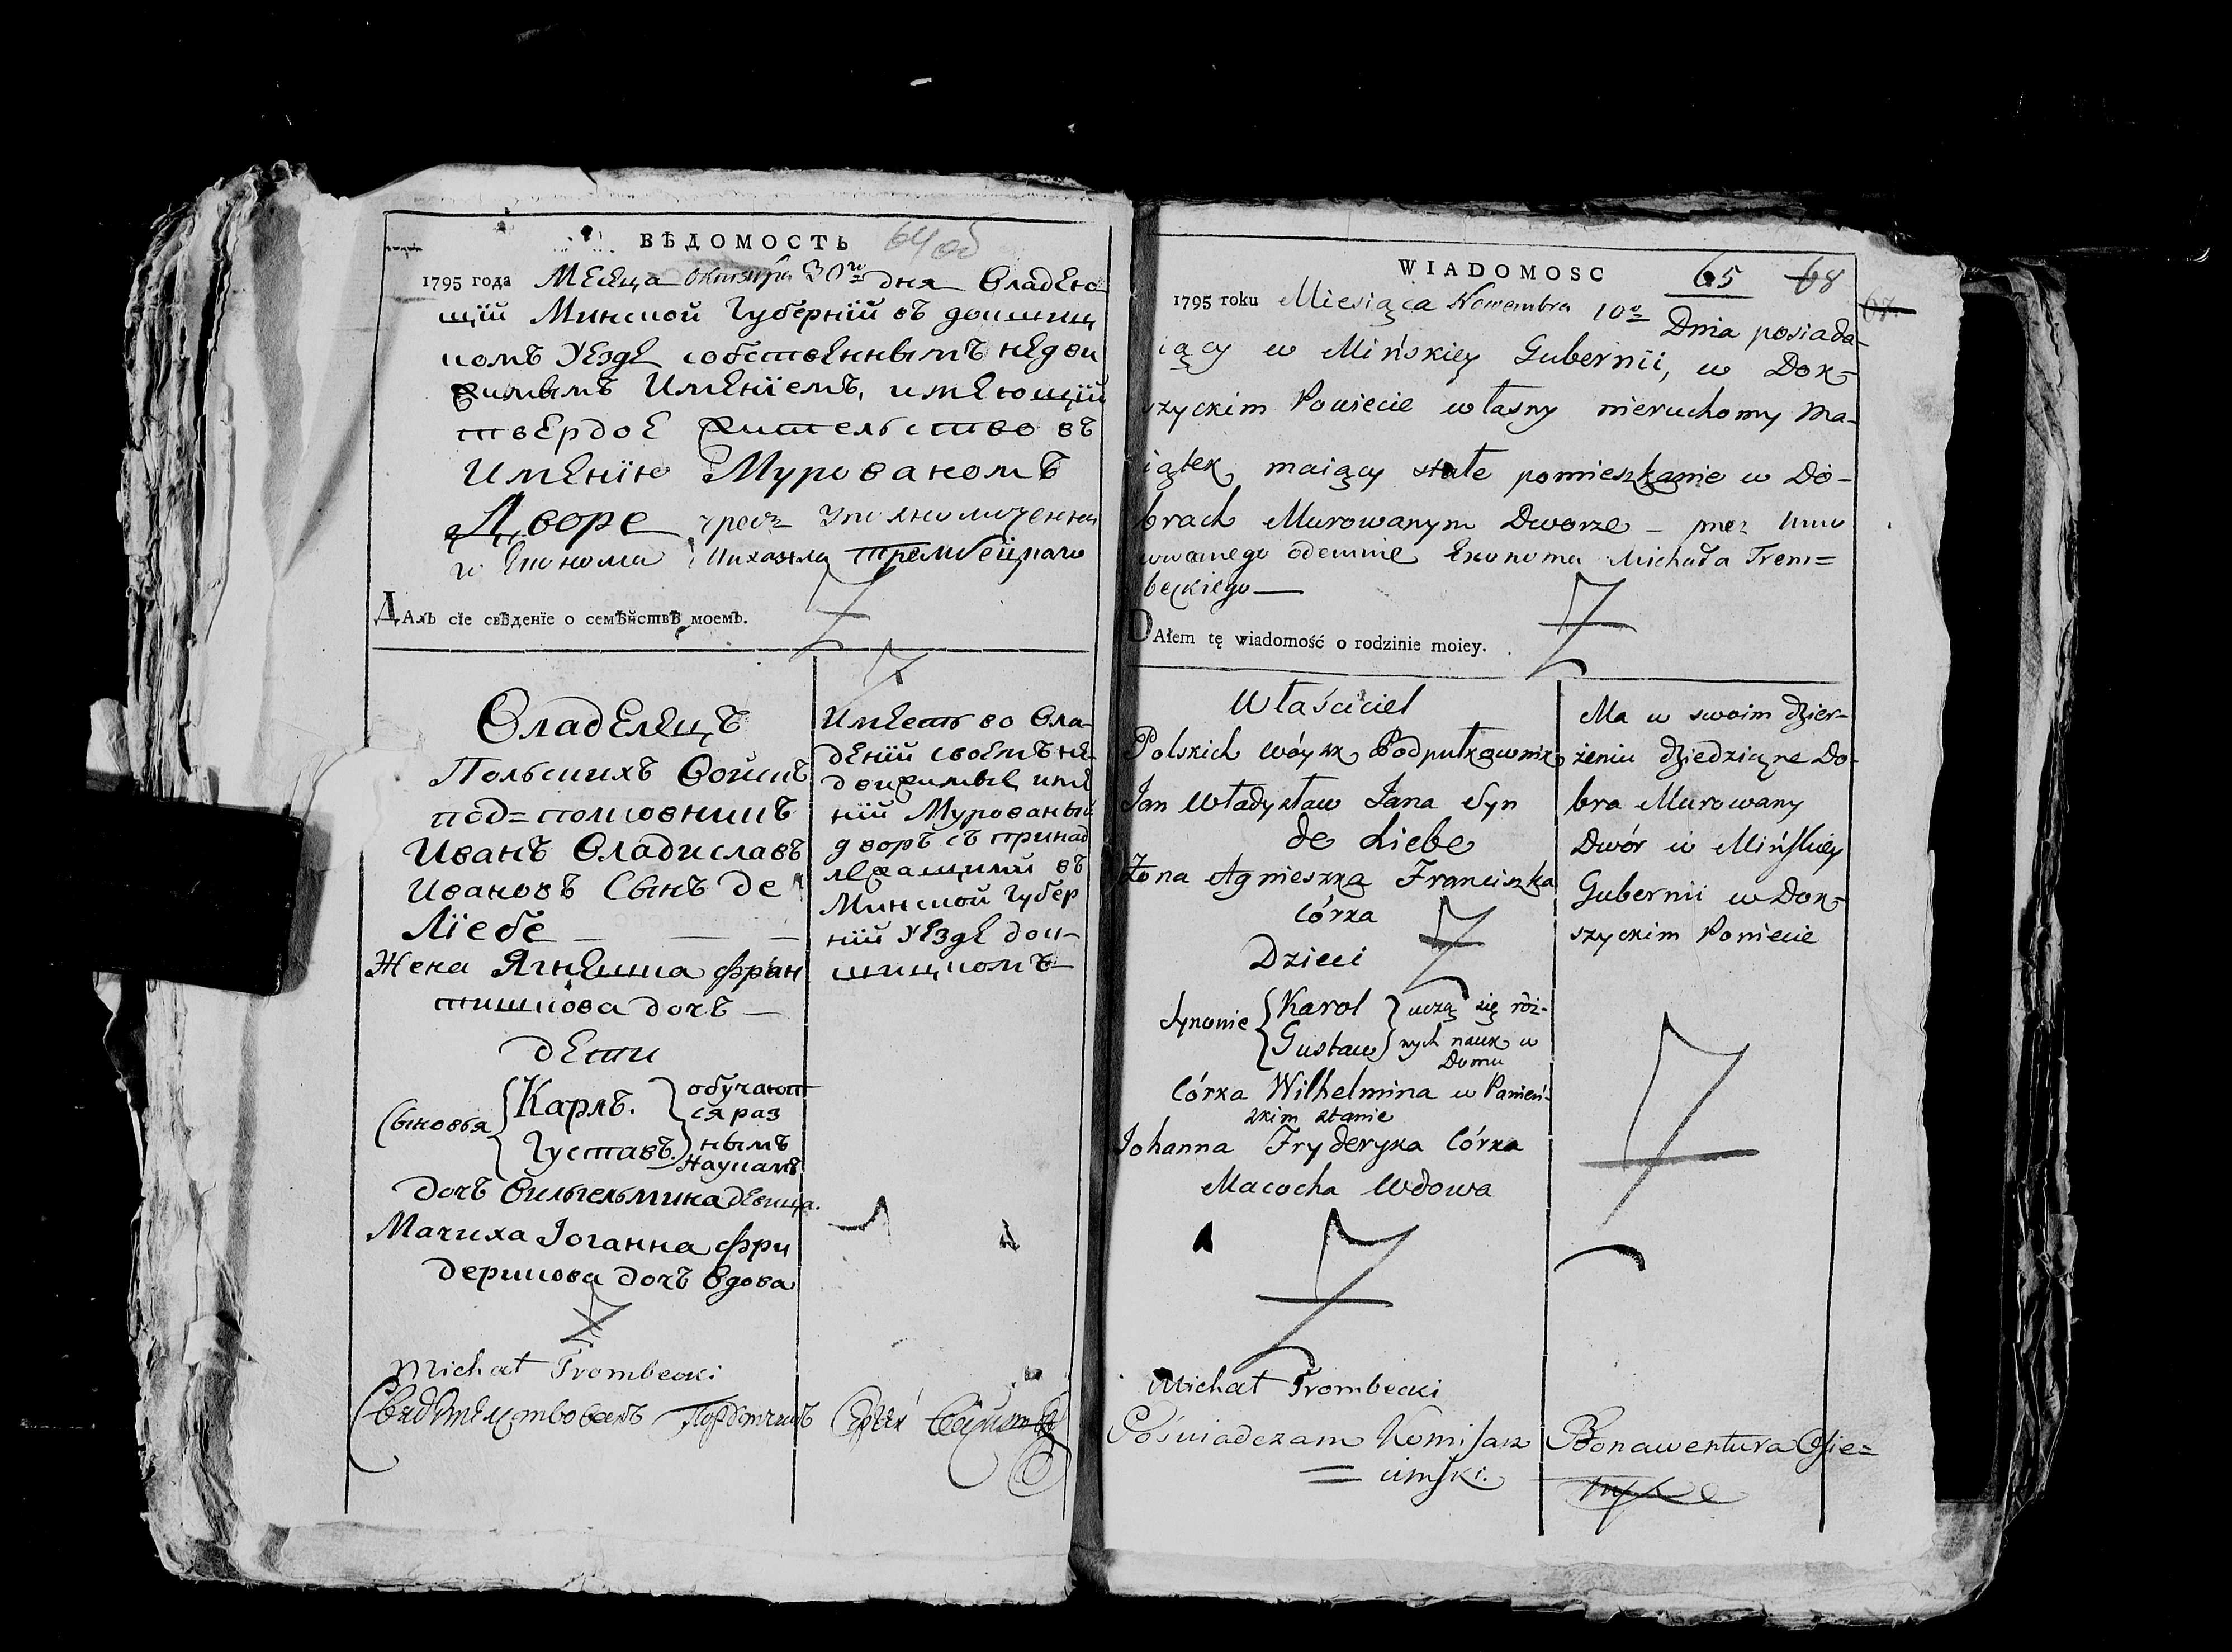 ВѢДОМОСТЬ 64 об
1795 года Месеца октября 30го дня Владею
щїй Минской Губернїй въ докшиц
комъ Уезде собственнымъ недви
жимымъ Именїемъ, имеющїй
твердое жительство въ
Именїю Мурованомъ
Дворе чрезъ
Економа Михаила Трембецкаго
ДАлъ сїе свѣденїе о семѣйствѣ моемъ.
Владелецъ
Польскихъ Войскъ
под=полковникъ
Иванъ Владиславъ
Ивановъ Сынъ де
Лїебе
Жена Ягнешка Фран
тишкова дочъ
дети
Сыновья Карлъ. Густавъ. обучают
ся раз
нымъ
Наукамъ
дочъ Вильгельмина девица.
Мачиха Іоганна Фри
дерикова дочъ Вдова
Имеетъ во Вла-
денїй своемъ не-
движимые име
нїй Мурованый
дворъ съ принад
лежащими въ
Минской Губер
нїй Уезде док-
шицкомъ
Michał Trombecki
Свидѣтелствовалъ Порутчикъ
WIADOMOSC 65 68
67
1795 roku Miesiąca Nowembra 10o Dnia posiada-
iący w Mińskiey Gubernii, w Dok-
szyckim Powiecie własny nieruchomy ma-
iątek, maiący stałe pomieszkanie w Do-
brach Murowanym Dworze - przez
odemnie Ekonoma Michała Trem=
beckiego
DAłem tę wiadomość o rodzinie moiey.
Właściciel
Polskich Wóysk Podpułkownik
Jan Władysław Jana Syn
de Liebe
Żona Agnieszka Franciszka
Córka
Dzieci
Synowie Karol Gustaw uczą się róż-
nych nauk w
Domu
Córka Wilhelmina w Panień-
skim stanie
Johanna Fryderyka Córka
Macocha Wdowa
Ma w swoim dzier-
żeniu dziedziczne Do-
bra Murowany
Dwór w Mińskiey
Gubernii w Dok-
szyckim Powiecie
Michał Trombecki
Poświadczam Komisarz Bonawentura Osie=
= cimski.